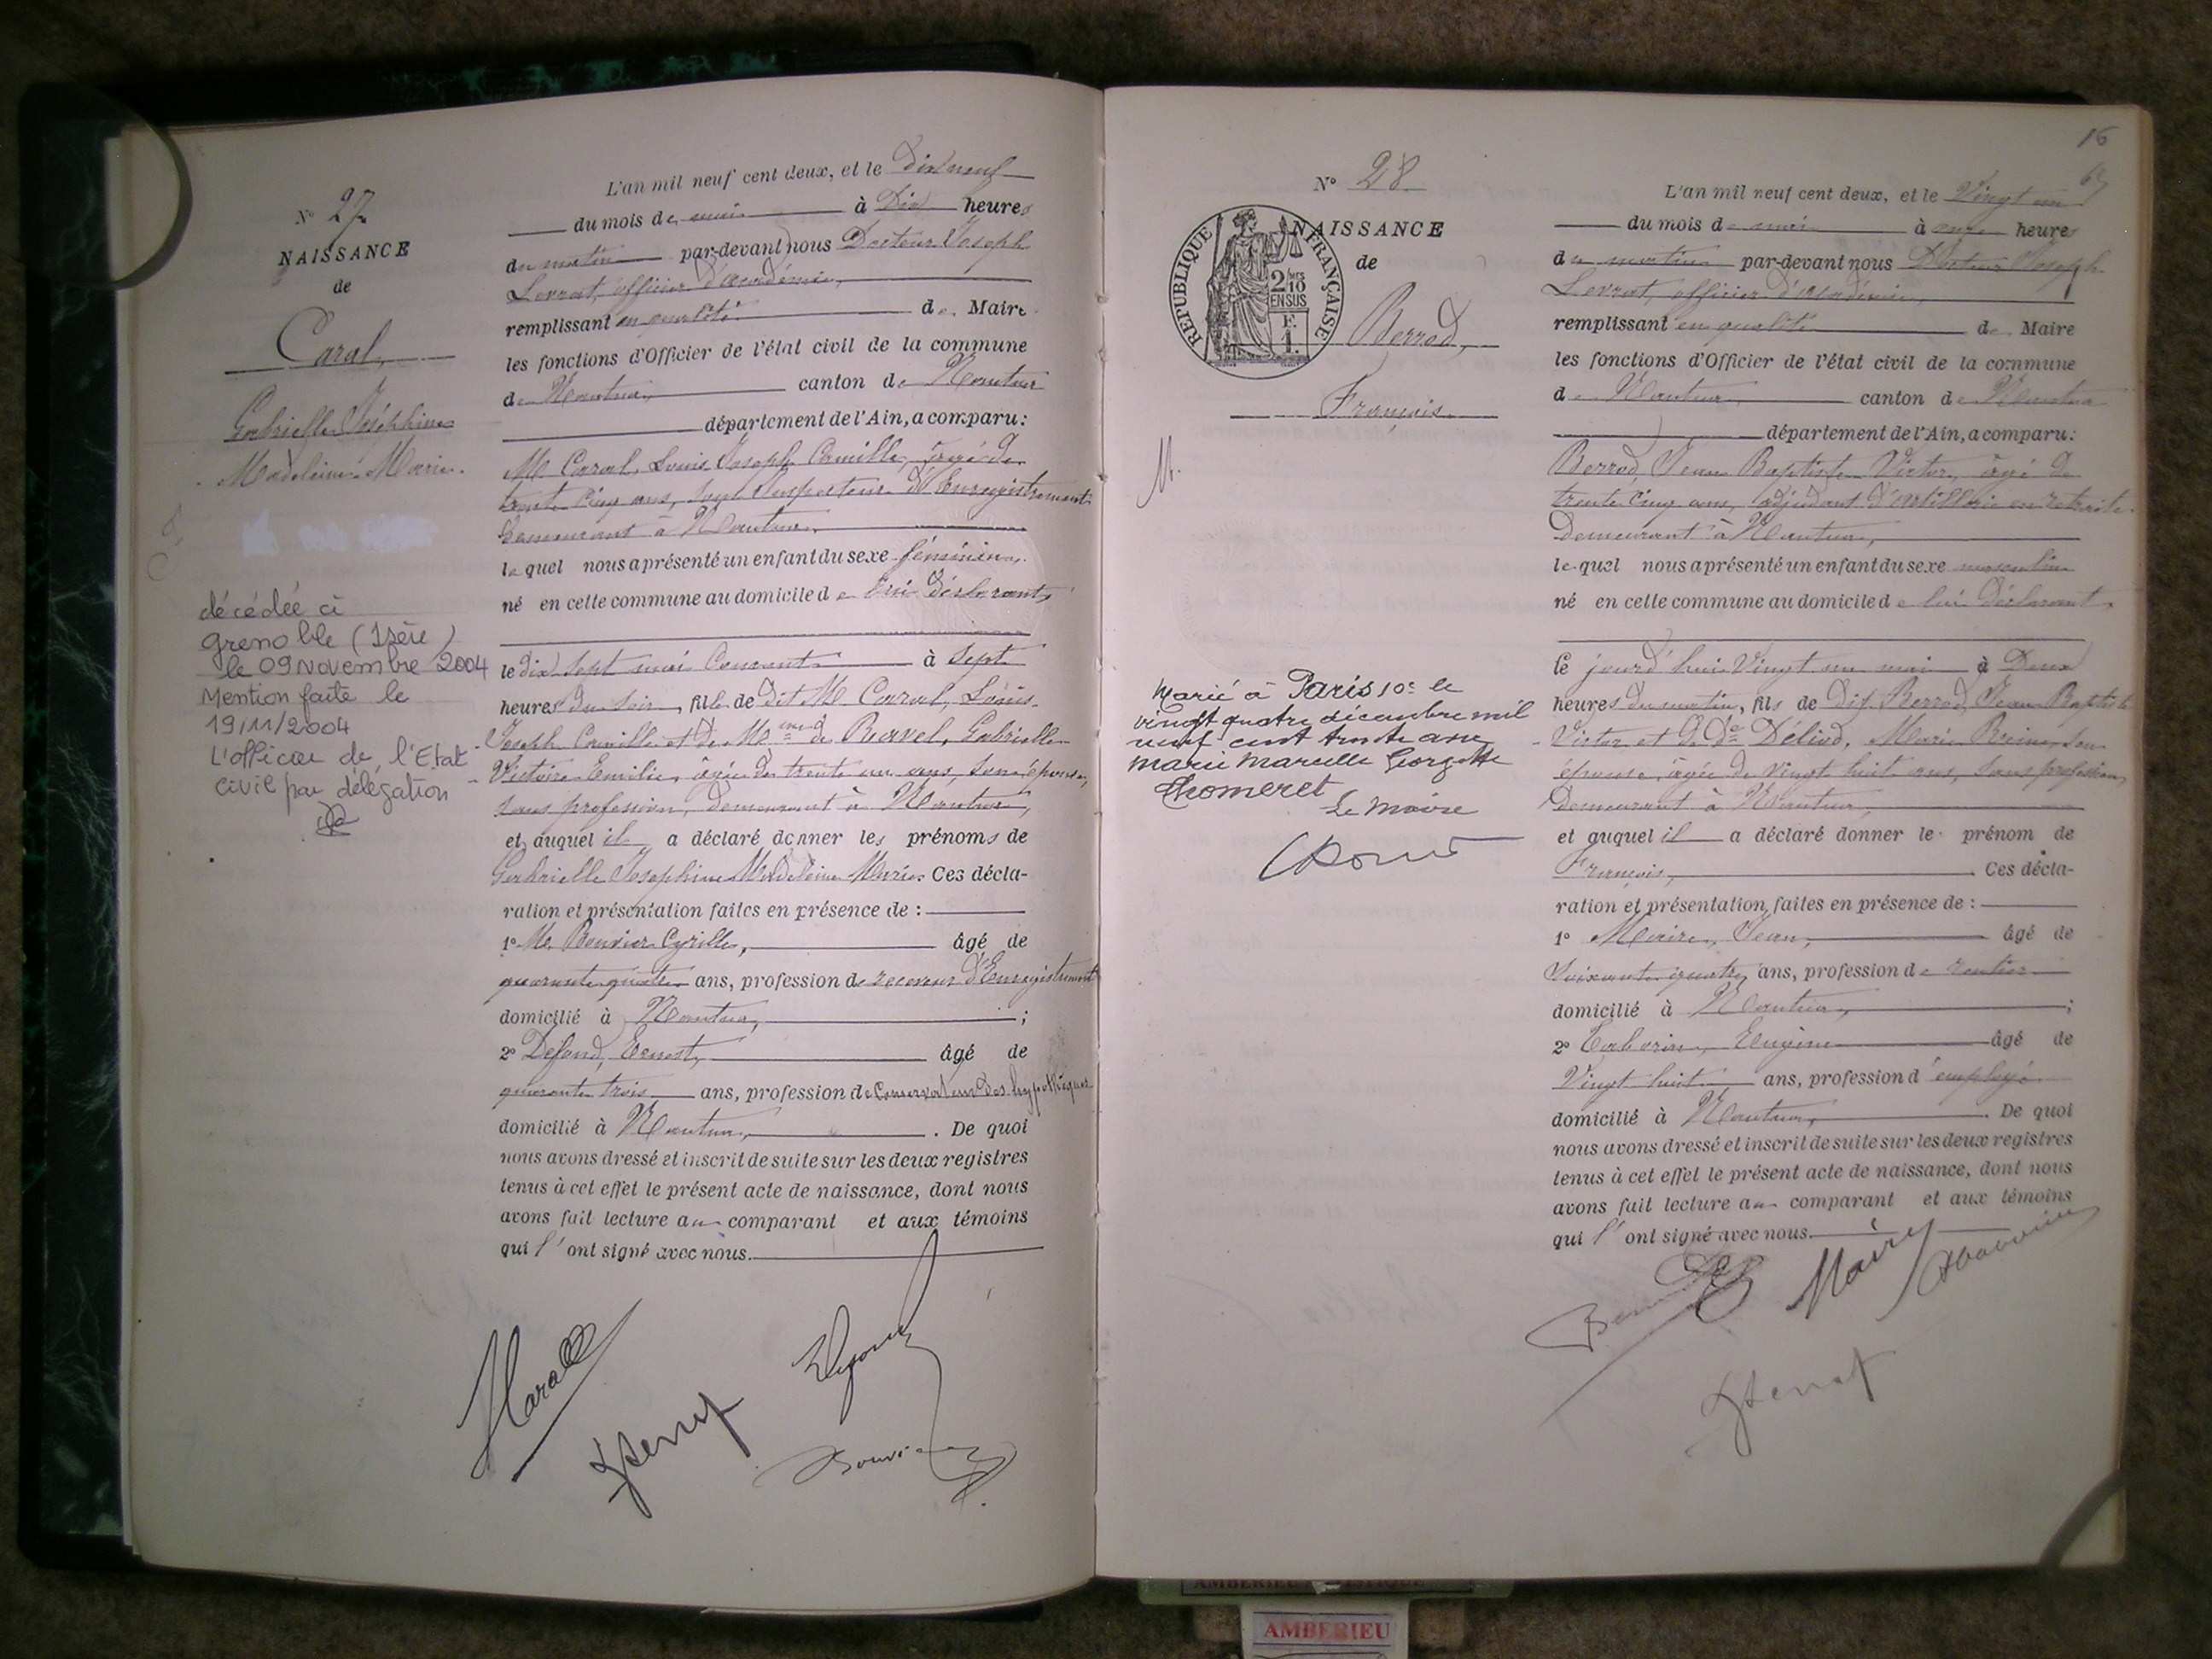 L'an mil neuf cent deux, et le dix neuf
du mois de mai à Dix heures
du matin par-devant nous Docteur Joseph
Levrat, officier d'académie,
remplissant en qualité de Maire
les fonctions d'Officier de l'état civil de la commune
de Nantua, canton de Nantua
département de l'Ain, a comparu:
M. Caral, Louis Joseph Camille, âgé de
trente cinq ans, sous Inspecteur d'Enregistrement
demeurant à Nantua,
lequel nous a présenté un enfant du sexe féminin,
né en cette commune au domicile de lui déclarant,
le dix sept mai Courant à Sept
heures du soir, fille de dit M. Caral, Louis
Joseph Camille et de Mme de Ravel, Gabrielle
Victoire Emilie, âgée de trente un ans, son épouse,
sans profession, demeurant à Nantua,
et auquel il a déclaré donner les prénoms de
Gabrielle Josephine Madeleine Marie. Ces décla-
ration et présentation faites en présence de :
1° M. Bouvier Cyrille, âgé de
quarante quatre ans, profession de receveur d'Enregistrement
domicilié à Nantua, ;
2° Ernest, âgé de
quarante trois ans, profession de Conservateur des hypothèques
domicilié à Nantua, . De quoi
nous avons dressé et inscrit de suite sur les deux registres
tenus à cet effet le présent acte de naissance, dont nous
avons fait lecture au comparant et aux témoins
qui l'ont signé avec nous.
N° 27
NAISSANCE
de
Caral,
Gabrielle Joséphine
Madeleine Marie.
décédée à
Grenoble (Isère)
le 09 Novembre 2004
Mention faite le
19/11/2004
L'officier de l'Etat
civil par délégation
16
N° 28
NAISSANCE
de
REPUBLIQUE FRANÇAISE
2/10
EN SUS
Berrod,
François.
Marié à Paris 10e le
vingt quatre décembre mil
neuf cent trente
Marie Marcelle Georgette
Thomeret
Le Maire
L'an mil neuf cent deux, et le Vingt un
du mois de mai à onze heures
du matin par-devant nous Docteur Joseph
Levrat, officier d'académie,
remplissant en qualité de Maire
les fonctions d'Officier de l'état civil de la commune
de Nantua canton de Nantua
département de l'Ain, a comparu:
Berrod, Jean Baptiste Victor, âgé de
trente cinq ans, adjudant d'artillerie en retraite
Demeurant à Nantua,
lequel nous a présenté un enfant du sexe masculin
né en cette commune au domicile de lui déclarant,
le jourd'hui Vingt un mai à Deux
heures du matin, fils de dit Berrod, Jean Baptiste
Victor et de De Déliod, Marie Reine, son
épouse, âgée de vingt huit ans, sans profession,
Demeurant à Nantua,
et auquel il a déclaré donner le prénom de
François, . Ces décla-
ration et présentation faites en présence de :
1° Maire, Jean, âgé de
Soixante quatre ans, profession de rentier
domicilié à Nantua, ;
2° Eugène âgé de
Vingt huit ans, profession d'employé
domicilié à Nantua, . De quoi
nous avons dressé et inscrit de suite sur les deux registres
tenus à cet effet le présent acte de naissance, dont nous
avons fait lecture au comparant et aux témoins
qui l'ont signé avec nous.
AMBERIEU